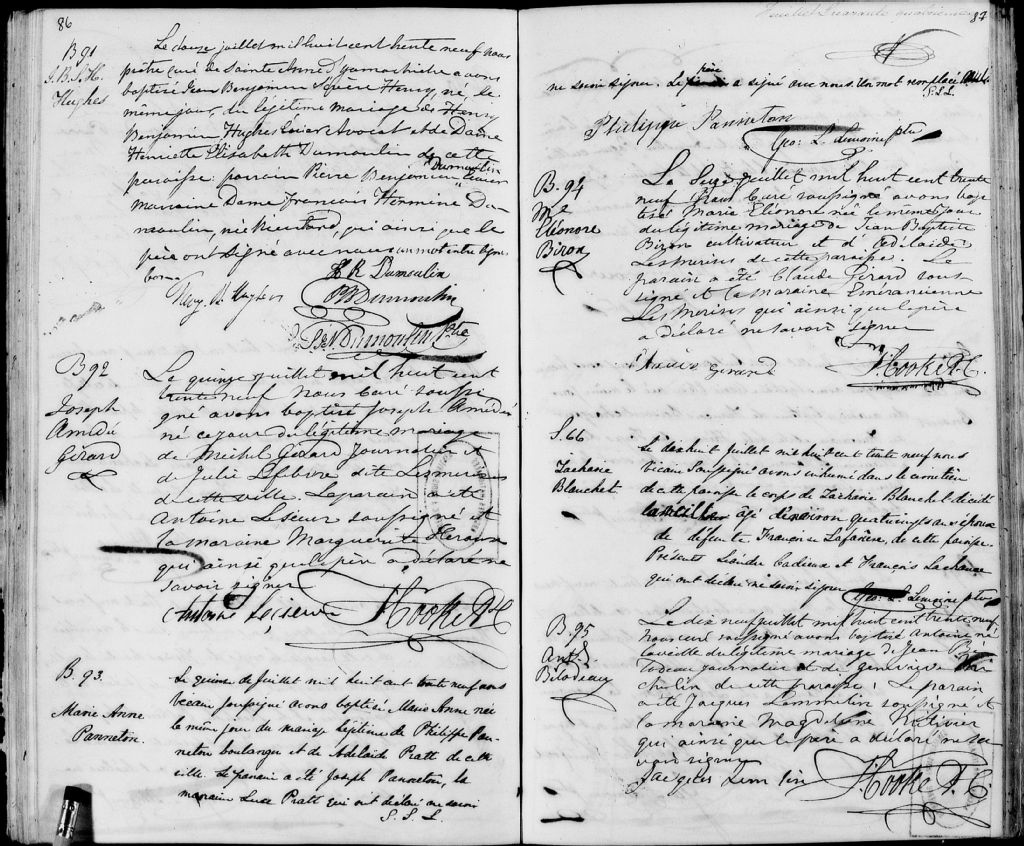 86
B 91
J. B. S. H.
Hughes
Le douze juillet mil huit cent trente neuf nous
prêtre curé de Sainte Anne d'Yamachiche avons
baptisé Jean Benjamin Henry, né, le
même jour, du légitime mariage de Henry
Benjamin Hughes Ecuier Avocat et de Dame
Henriette Elisabeth Dumoulin de cette
paroisse: parrain Pierre Benjamin Dumoulin Ecuier
Marraine Dame François Hermine Du-
moulin, née Kierstead, qui ainsi que le
père ont signé avec nous un mot entre ligne
bon
H R Dumoulin
Henry B. Hughes
P B Dumoulin
Dumoulin Ptre
B 92
Joseph
Amédé
Girard
Le quinze juillet mil huit cent
trente neuf Nous Curé soussi
gné avons baptisé Joseph Amédé
né ce jour du légitime mariage
de Michel Girard Journalier et
de Julie Lefebvre dite Lemire
de cette ville. Le parain a été
Antoine Lesieur soussigné et
la maraine Marguerite Heroux
qui ainsi que le père a déclaré ne
savoir signer
Antoine Lesieur
J Cooke P.C
B. 93.
Marie Anne
Panneton.
Le quinze de juillet mil huit cent trente neuf nous
vicaire soussigné avons baptisé Marie Anne née
le même jour du mariage légitime de Philippe Pan-
neton boulanger et de Adelaide Pratt de cette
ville. Le parain a été Joseph Panneton, la
maraine Luce Pratt qui ont déclaré ne savoir
S. S. L.
87
Feuillet Quarante quatrieme
ne savoir signer. Le père a signé avec nous. Un mot remplacé
S.S.L
Philippe Panneton
Geo: S. Lemoine ptre
B. 94
Mie
Eléonore
Biron
Le Seize juillet mil huit cent trente
neuf Nous Curé soussigné avons bap
tisé Marie Eléonore née le même jour
du légitime mariage de Jean Baptiste
Biron cultivateur et d'Adélaide
Desmarins de cette paroisse. Le
parain a été Claude Girard sous
signé et la maraine Emérancienne
qui ainsi que le père
a déclaré ne savoir signer
Girard
J. Cooke P.C.
S. 66
Zacharie
Blanchet
Le dix huit juillet mil huit cent trente neuf nous
vicaire soussigné avons inhumé dans le cimetière
de cette paroisse le corps de Zacharie Blanchet décédé
âgé d'environ quatre vingts ans époux
de défunte Françoise Laferiere, de cette paroisse.
Présents Léandre Cadieux et François Lachance
qui ont déclaré ne savoir signer
Geo. S. Lemoine ptre
B. 95
Ant.
Bilodeau
Le dix neuf juillet mil huit cent trente neuf
nous curé soussigné avons baptisé Antoine né
la veille du légitime mariage de Jean
journalier et de Genevieve
de cette paroisse: Le parain
a été Jacques soussigné et
la maraine Magdeleine Rivier
qui ainsi que le père a déclaré ne sa
voir signer
J. Cooke P. C